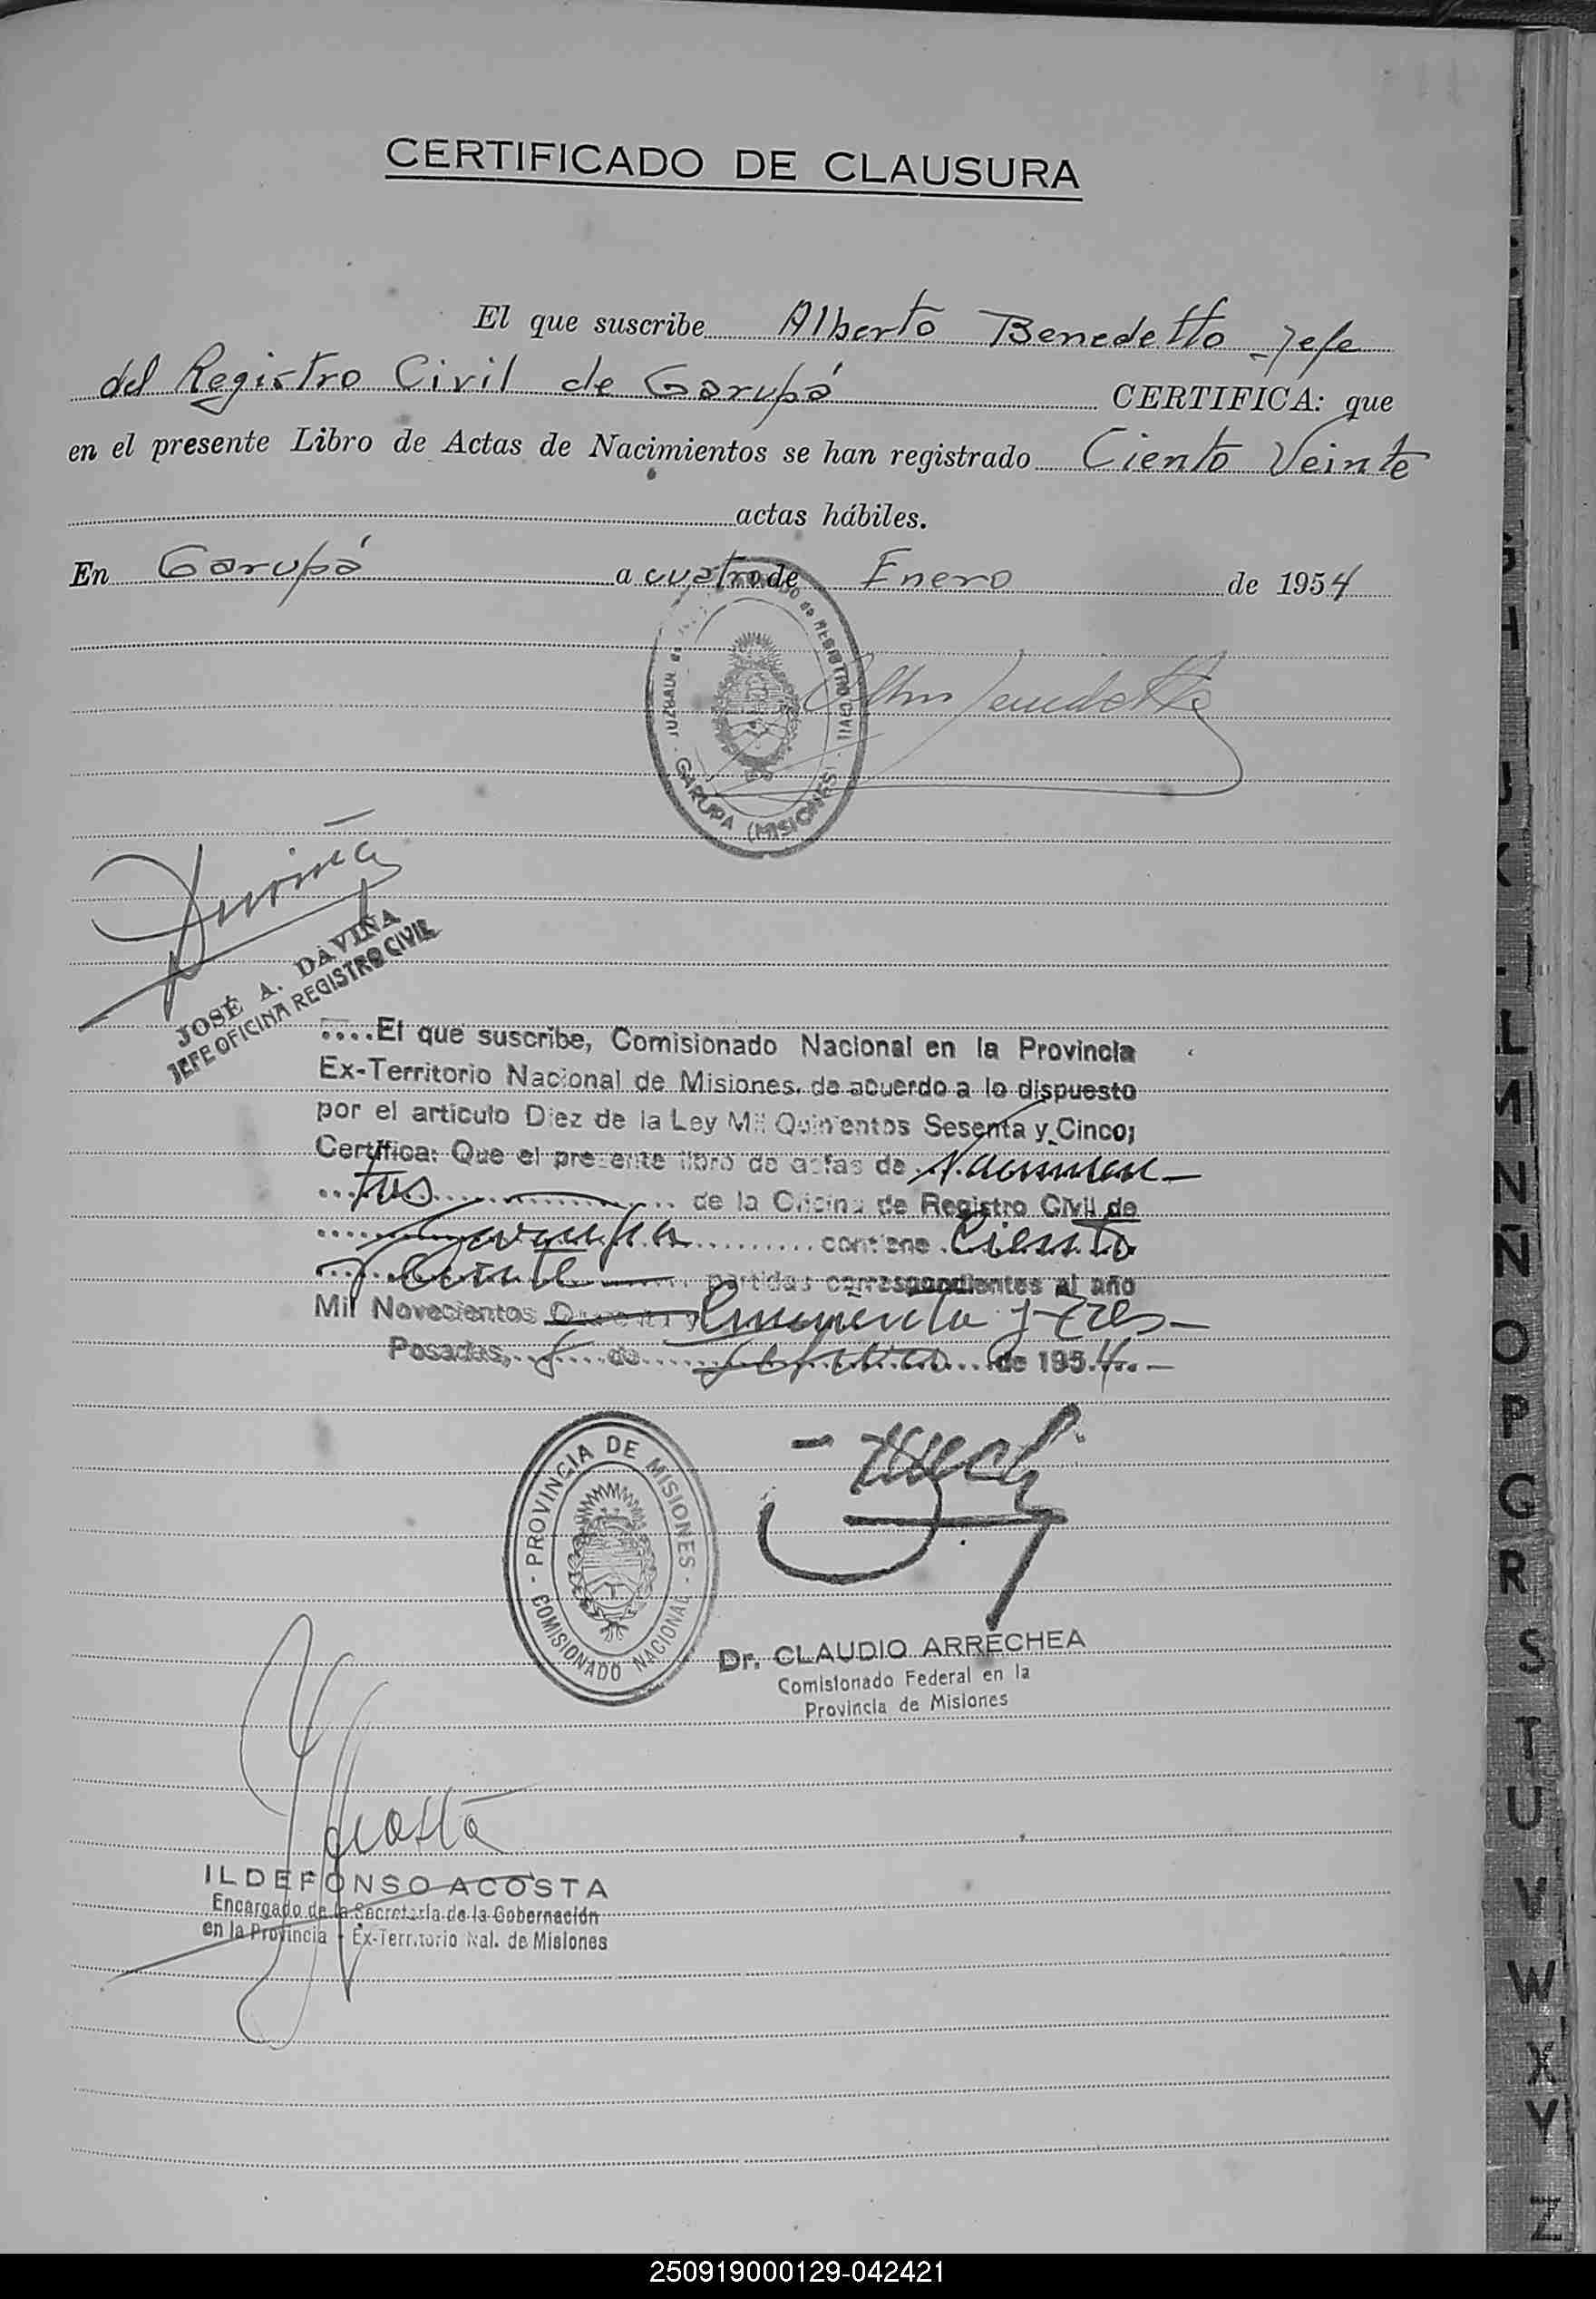 CERTIFICADO DE CLAUSURA
El que suscribe Alberto Benedetto Jefe
del Registro Civil de Garupá CERTIFICA: que
en el presente Libro de Actas de Nacimientos se han registrado Ciento Veinte
actas hábiles.
En Garupá a cuatro de Enero de 1954
JUZGADO de REGISTRO CIVIL
GARUPA (MISIONES)
JOSÉ A. DAVIÑA
JEFE OFICINA REGISTRO CIVIL
....El que suscribe, Comisionado Nacional en la Provincia
Ex-Territorio Nacional de Misiones, de acuerdo a lo dispuesto
por el artículo Diez de la Ley Mil Quinientos Sesenta y Cinco;
Certifica: Que el presente libro de actas de Nacimien-
tos de la Oficina de Registro Civil de
Garupá contiene Ciento
Veinte partidas correspondientes al año
Mil Novecientos Cincuenta y Tres
Posadas, de de 1954.
- PROVINCIA DE MISIONES -
COMISIONADO NACIONAL
Dr. CLAUDIO ARRECHEA
Comisionado Federal en la
Provincia de Misiones
ILDEFONSO ACOSTA
Encargado de la Secretaría de la Gobernación
en la Provincia - Ex-Territorio Nal. de Misiones
L
M
N
Ñ
O
P
R
S
T
U
V
W
X
Y
Z
250919000129-042421